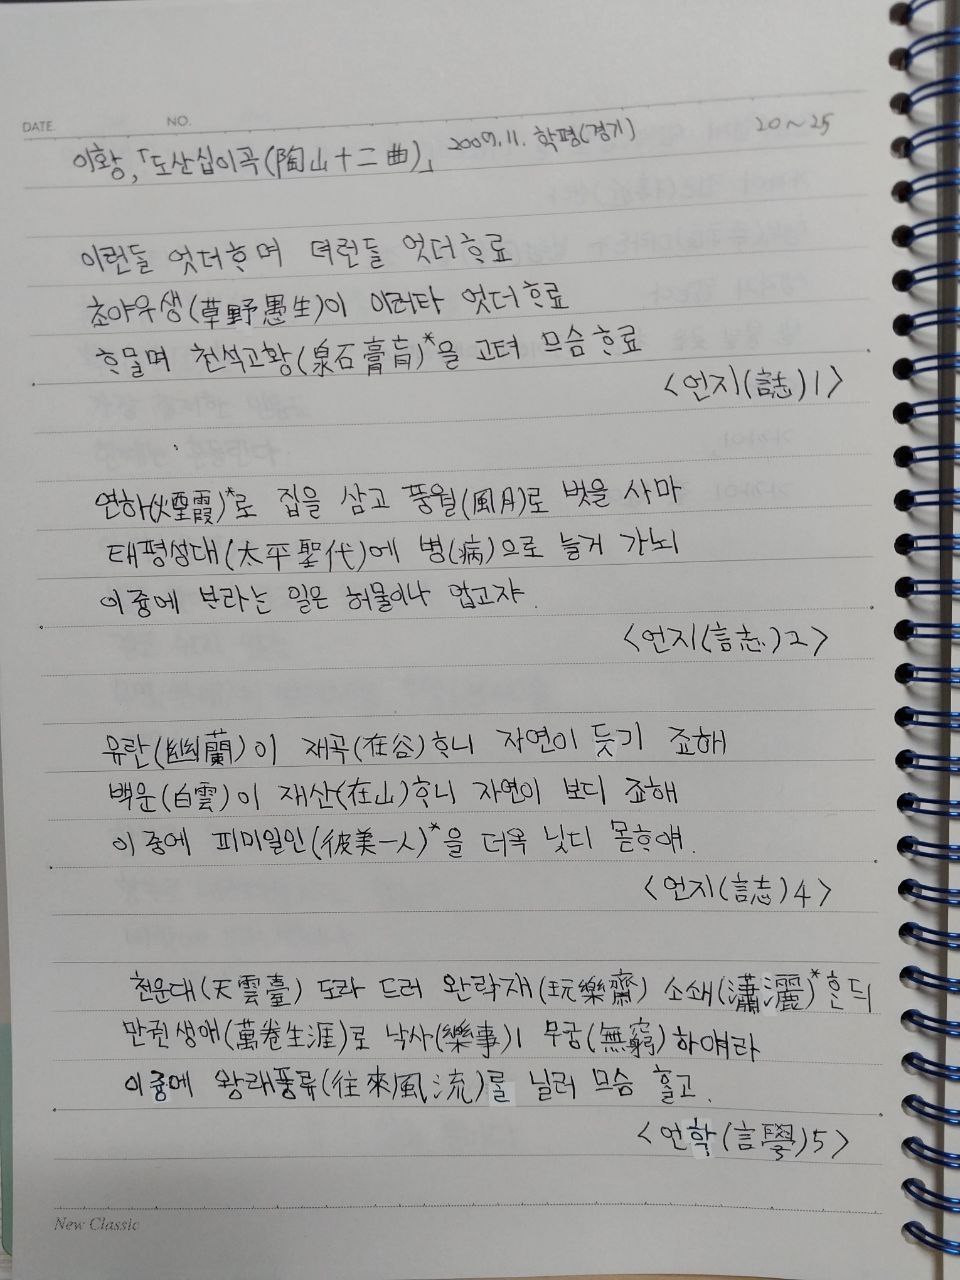 DATE. NO.
이황, 「도산십이곡(陶山十二曲)」 2007.11. 학평(경기) 20~25
이런들 엇더ᄒᆞ며 뎌런들 엇더ᄒᆞ료
초야우생(草野愚生)이 이러타 엇더ᄒᆞ료
ᄒᆞ믈며 천석고황(泉石膏肓)*을 고텨 므슴ᄒᆞ료
<언지(誌)1>
연하(煙霞)*로 집을 삼고 풍월(風月)로 벗을 사마
태평성대(太平聖代)에 병(病)으로 늘거 가뇌
이 즁에 ᄇᆞ라는 일은 허물이나 업고쟈.
<언지(言志)2>
유란(幽蘭)이 재곡(在谷)ᄒᆞ니 자연이 듯기 죠해
백운(白雲)이 재산(在山)ᄒᆞ니 자연이 보디 죠해
이 중에 피미일인(彼美一人)*을 더욱 닛디 몯ᄒᆞ얘.
<언지(言志)4>
천운대(天雲臺) 도라 드러 완락재(玩樂齋) 소쇄(瀟灑)*ᄒᆞᆫ듸
만권생애(萬卷生涯)로 낙사(樂事)ㅣ 무궁(無窮)하얘라
이 중에 왕래풍류(往來風流)를 닐러 므슴 ᄒᆞᆯ고.
<언학(言學)5>
New Classic